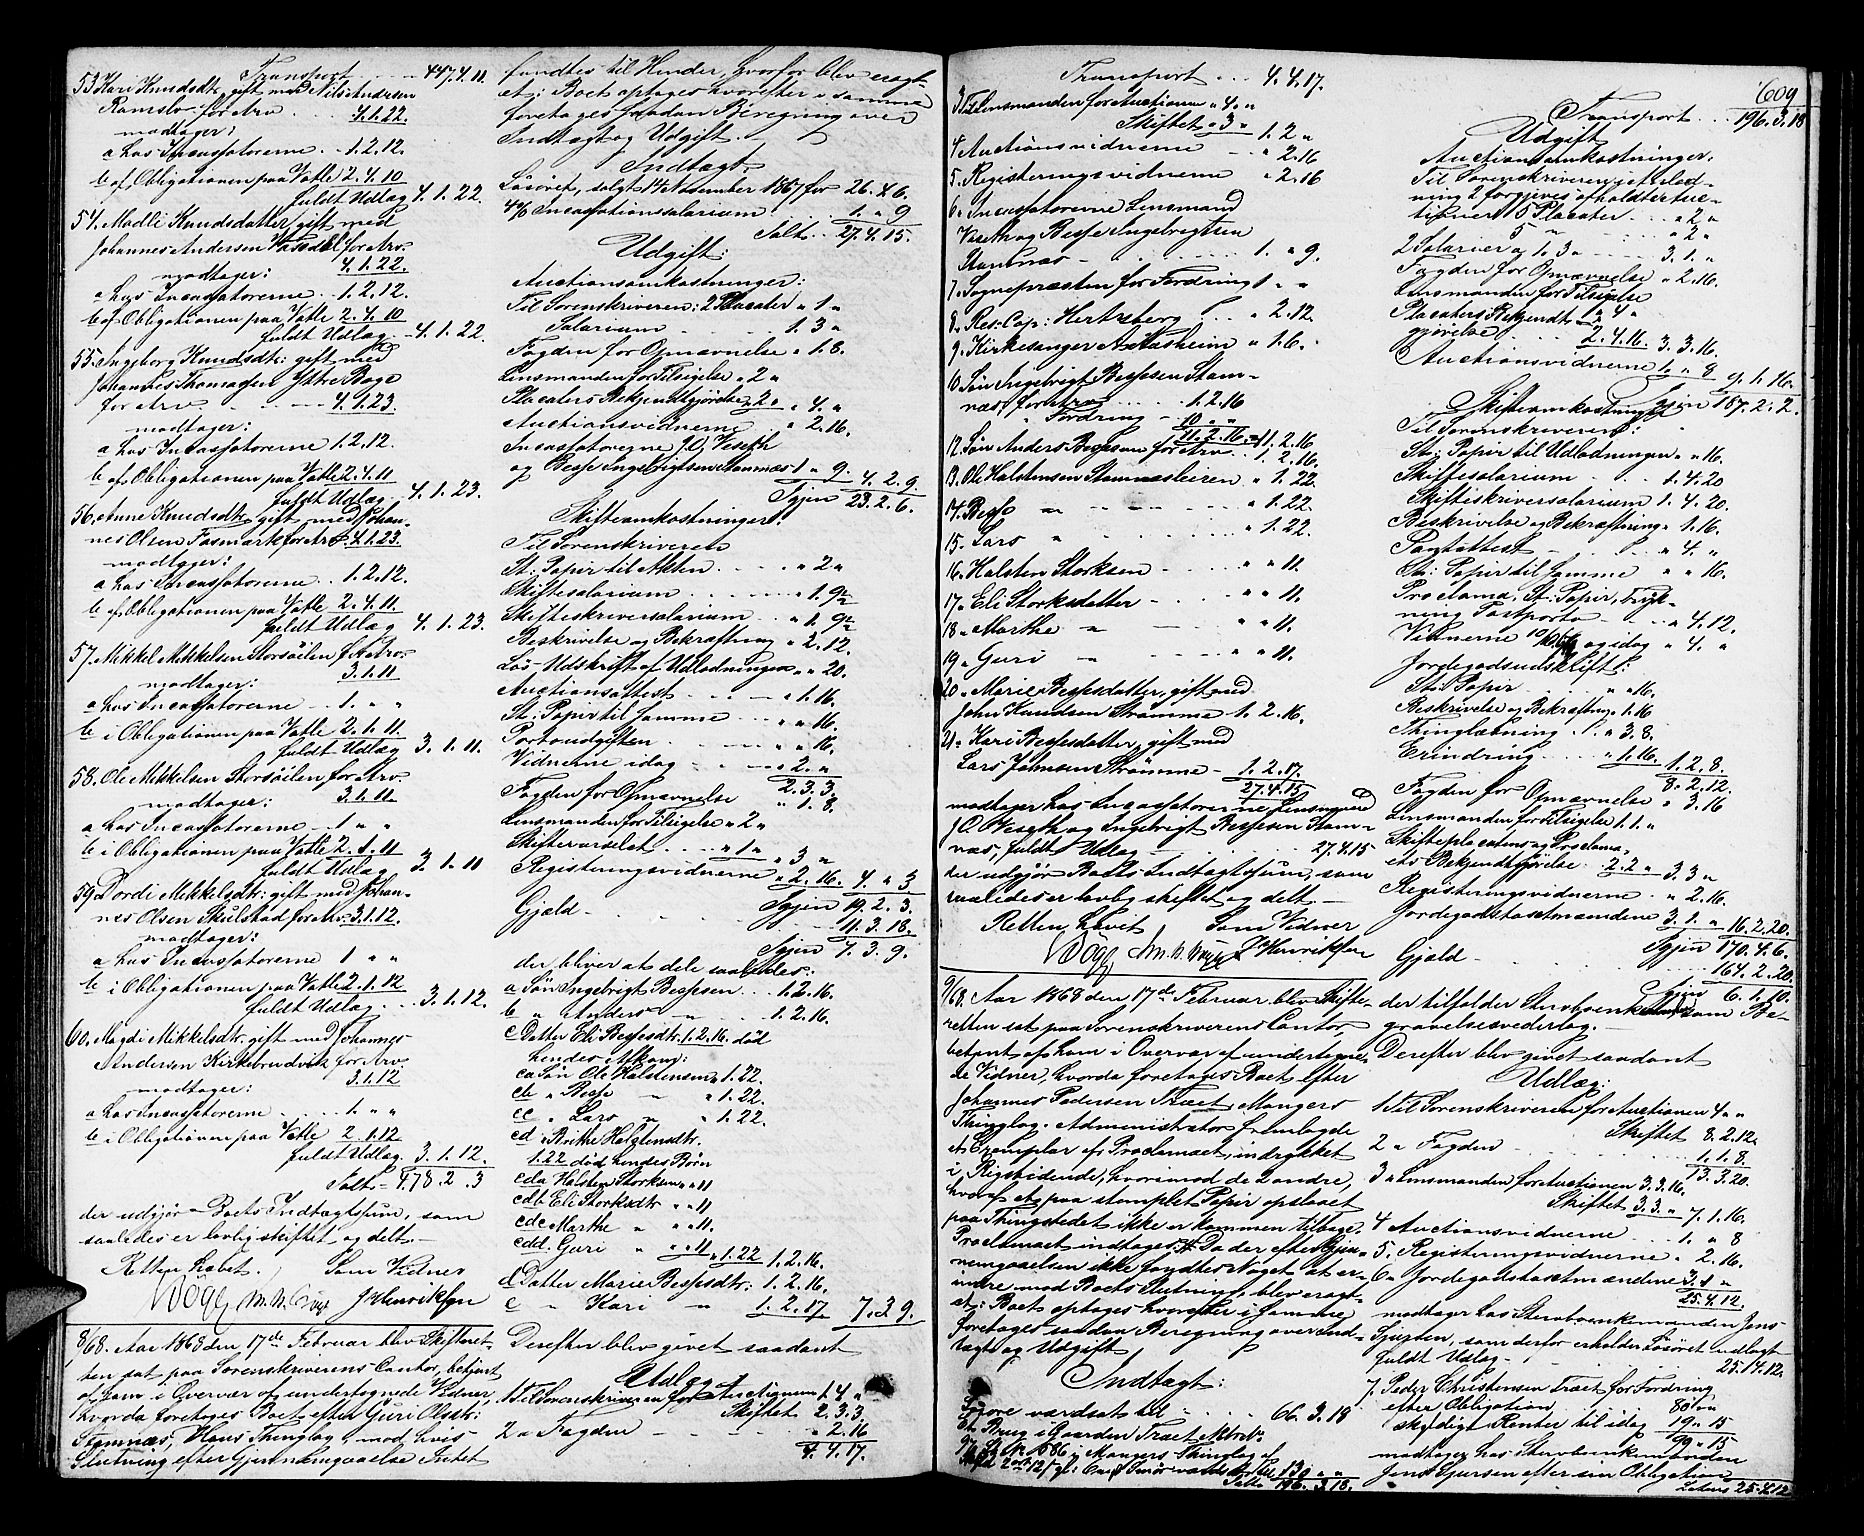 Transport . . . 447.4.11.
53. Kari Knudsdtr. gift med Nils Andersen
Ramslv for Arv . . . 4.1.22.
modtager:
a hos Incassatorerne . . 1.2.12.
b af Obligationen paa Vatle 2.4.10
fuldt Udlæg 4.1.22.
54. Madli Knudsdatter gift med
Johannes Andersen for Arv.
modtager: 4.1.22.
a hos Incassatorerne . . 1.2.12.
b af Obligationen paa Vatle 2.4.10
fuldt Udlæg 4.1.22.
55. Ingeborg Knudsdtr: gift med
Johannes Thomassen Ystre Boge
for Arv. . . . 4.1.23
modtager:
a hos Incassatorerne 1.2.12.
b af Obligationen paa Vatle 2.4.11
fuldt Udlæg 4.1.23.
56. Anne Knudsdtr. gift med Johan-
nes Olsen Fosmark for Arv 4.1.23.
modtager:
a hos Incassatorerne . . 1.2.12.
b af Obligationen paa Vatle 2.4.11.
fuldt Udlæg 4.1.23.
57. Mikkel Mikkelsen Storsöilen for Arv.
modtager: 3.1.11
a hos Incassatorerne 1. " "
b i Obligationen paa Vatle 2.1.11.
fuldt Udlæg 3.1.11.
58. Ole Mikkelsen Storsöilen for Arv.
modtager: 3.1.11.
a hos Incassatorerne 1 " "
b i Obligationen paa Vatle 2.1.11
fuldt Udlæg 3.1.11
59. Dordi Mikkelsdtr: gift med Johan-
nes Olsen Skulstad for Arv. 3.1.12.
modtager:
a hos Incassatorerne 1 " "
b i Obligationen paa Vatle 2.1.12
fuldt Udlæg . . . 3.1.12.
60. Magdi Mikkelsdtr. gift med Johannes
Andersen Kirkebrudvik for Arv
modtager: 3.1.12
a hos Incassatorerne . . . 1. " "
b i Obligationen paa Vatle 2.1.12
fuldt Udlæg. 3.1.12.
Salt. 478.2.3
der udgjör Boets Indtægtssum, som
saaledes er lovlig skiftet og delt.
Retten hævet. Som Vidner
J Henriksen
8/68. Aar 1868 den 17de Februar blev Skifteret-
ten sat paa Sorenskriverens Contor, betjent
af ham i Overvær af undertegnede Vidner,
hvorda foretoges Boet efter Guri Olsdtr:
Stamnæs, Hans Thinglag, mod hvis
Slutning efter Gjennemgaaelse Intet
fandtes til Hinder, hvorfor blev eragt-
et: Boet optages hvorefter i samme
foretoges saadan Beregning over
Indtægt og Udgift.
Indtægt.
Lösöret, solgt 14 November 1867 for 26.4.6.
4% Incassationssalarium . . . 1. " 9
Salt. . . 27.4.15.
Udgift:
Auctionsomkostninger:
Til Sorenskriveren: 2 Placater " 1 "
Salarium . . . 1.3 "
Fogden for Opnævnelse " 1.8.
Lensmanden for Tilsigelse " 2 "
Placaters Bekjendtgjörelse " 2 " " 4. "
Auctionsvidnerne . . . " 2.16.
Incassatorerne J. O. Viseth
og Besse Ingebrigtsen Stamnæs 1 " 9. 4.2.9.
Igjen 23.2.6.
Skifteomkostninger:
Til Sorenskriveren
St. Papir til Akten . . . " 2 "
Skiftesalarium . . . " 1.9½
Skifteskriversalarium . . . " 1.9½
Beskrivelse og Bekræftning " 2.12.
Lös Udskrift af Udlodningen " " 20.
Auctionsattest . . . " 1.16.
St. Papir til samme . . . " " 16.
Portoudgiften . . . " " 16.
Vidnerne idag . . . " 2. "
2.3.3
Fogden for Opnævnelse " 1.8.
Lensmanden for Tilsigelse " 2 "
Skiftevarselet . . . " 1 " " 3 "
Registeringsvidnerne " 2.16. 4. " 3
Igjen 19.2.3.
Gjæld . . . 11.3.18.
Igjen 7.3.9.
der bliver at dele saaledes:
a Sön Ingebrigt Bessesen . . . 1.2.16.
b " Anders " . . . 1.2.16.
c Datter Eli Bessesdtr. 1.2.16. död
hendes Afkom:
ca Sön Ole Halstensen " 1.22.
cb " Besse " " 1.22.
cc " Lars " " 1.22
cd . Brithe Halstensdtr.
1.22 död hendes Börn
cda Halsten Storksen " " 11
cdb Eli Storksdtr " " 11
cdc Marthe " " " 11.
cdd. Guri " " " 11 " 1.22 1.2.16.
d Datter Marie Bessesdtr: 1.2.16.
e " Kari " 1.2.17 7.3.9.
Derefter blev givet saadant
Udlæg
1 Til Sorenskriveren for Auctionen 1.4 "
Skiftet 2.3.3
2 " Fogden . . . " 2.16
4.4.17.
Transport . . . 4.4.17.
3 Til Lensmanden for Auctionen " 4. "
Skiftet " 3 " 1.2 "
4. Auctionsvidnerne . . . " 2.16
5. Registeringsvidnerne " 2.16
6. Incassatorerne Lensmand
Viseth og Besse Ingebrigtsen
Stamnæs . . . 1. " 9.
7. Sognepræsten for Fordring 1 " "
8. Res: Cap: Hertzberg . . . " 2.12.
9. Kirkesanger A Aasheim " 1.6.
10 Sön Ingebrigt Bessesen Stam-
næs, for Arv . . . 1.2.16
" Fordring 10 " "
11.2.16 11.2.16
12. Sön Anders Bessesen for Arv . . 1.2.16.
13. Ole Halstensen Stamnesleiren " 1.22
14. Besse " " . . . " 1.22.
15. Lars " . . . " 1.22
16. Halsten Storksen . . . " " 11.
17. Eli Storksdatter . . . " " 11.
18 " Marthe " . . . " " 11.
19 " Guri " . . . " " 11.
20. Marie Bessesdatter, gift med
John Knudsen Strömme 1.2.16.
21. Kari Bessesdatter, gift med
Lars Johnsen Strömme 1.2.17.
27.4.15
modtager hos Incassatorerne Lensmand
J O Viseth og Ingebrigt Bessesen Stam-
næs, fuldt Udlæg . . . 27.4.15
der udgjör Boets Indtægtssum, som
saaledes er lovlig skiftet og delt.
Retten hævet Som Vidner
J Henriksen
9/68. Aar 1868 den 17de Februar blev Skifte-
retten sat paa Sorenskriverens Contor,
betjent af ham i Overvær af undertegne-
de Vidner, hvorda foretoges Boet efter
Johannes Pedersen Træet, Mangers
Thinglag. Administrator fremlagde
et Exemplar af Proclamaet, indrykket
i Rigstidende, hvorimod de 2 andre,
hvoraf et paa stemplet Papir opslaaet
paa Thingstedet ikke er kommen tilbage.
Proclamaet indtages: Da der efter Gjen-
nemgaaelsen ikke fandtes Noget at er-
indre mod Boets Slutning, blev eragt-
et: Boet optages hvorefter i samme
foretoges saadan Beregning over Ind-
tægt og Udgift
Indtægt:
Lösöre værdsat til . . . 66.3.18
Et Brug i Gaarden Træet Mtr No
i Mangers Thinglag af
130 " "
Salt. 196.3.18.
609
Transport . . . 196.3.18
Udgift
Auctionsomkostninger.
Til Sorenskriveren i et Aad-
ning 2 forgjeves afholdte Auc-
tioner 8 Placater . . . " 2 "
5 " . . . " 2 "
2 Salarier a 1.3 " . . . 3.1. "
Fogden for Opnævnelse " 2.16.
Lensmanden for Tilsigelse
Placaters Bekjendt- 1 " 4 "
gjörelse . . . 2.4.16. 3.3.16.
Auctionsvidnerne 1 " 8 9.1.16.
Igjen 187.2.2.
Skifteomkostninger
Til Sorenskriveren:
St. Papir til Udlodningen " " 16.
Skiftesalarium . . . 1.4.20
Skifteskriversalarium 1.4.20.
Beskrivelse og Bekræftning " 1.16.
Pantattest . . . " 4. "
St. Papir til samme " " 16.
Proclama, St. Papir, Tryk-
ning Postporto . . . " 4.12.
Vidnerne og idag " 4. "
Jordegodsudskrift:
St. Papir . . . " " 16.
Beskrivelse og Bekræftning " 1.16
Thinglæsning . . . " 3.8.
Erindring . . . " 1.16. 1.2.8.
8.2.12.
Fogden for Opnævnelse " 3.16
Lensmanden for Tilsigelse 1.1. "
Skifteplacatens og Proclama-
ets Bekjendtgjörelse 2.2 " 3.3 "
Registeringsvidnerne . . " 2.16.
Jordegodstaxtmændene 3.1. " 16.2.20.
Igjen 170.4.6.
Gjæld . . . 164.2.20.
Igjen 6.1.10.
der tilfalder Stervboenkemanden som Be-
gravelsesvederlag.
Derefter blev givet saadant
Udlæg:
1 Til Sorenskriveren for Auctionen 4 " "
Skiftet 8.2.12.
2 " Fogden . . . 1.1.8.
13.3.20.
3 " Lensmanden for Auctionen 3.3.16.
Skiftet 3.3. " 7.1.16.
4 Auctionsvidnerne . . . 1. " 8
5. Registeringsvidnerne " 2.16.
6 " Jordegodstaxtmændene 3.1 "
25.4.12.
modtager hos Stervboenkemanden Jens
Sjursen, som derfor erholder Lösöret udlagt
fuldt Udlæg . . . 25.4.12.
7. Peder Christensen Træet for Fordring
efter Obligation . . . 80 " "
skyldigt Renter til idag 19 " 15
99 " 15
modtager hos Stervboenkemanden
Jens Sjursen efter sin Obligation
Latus 25.4.12